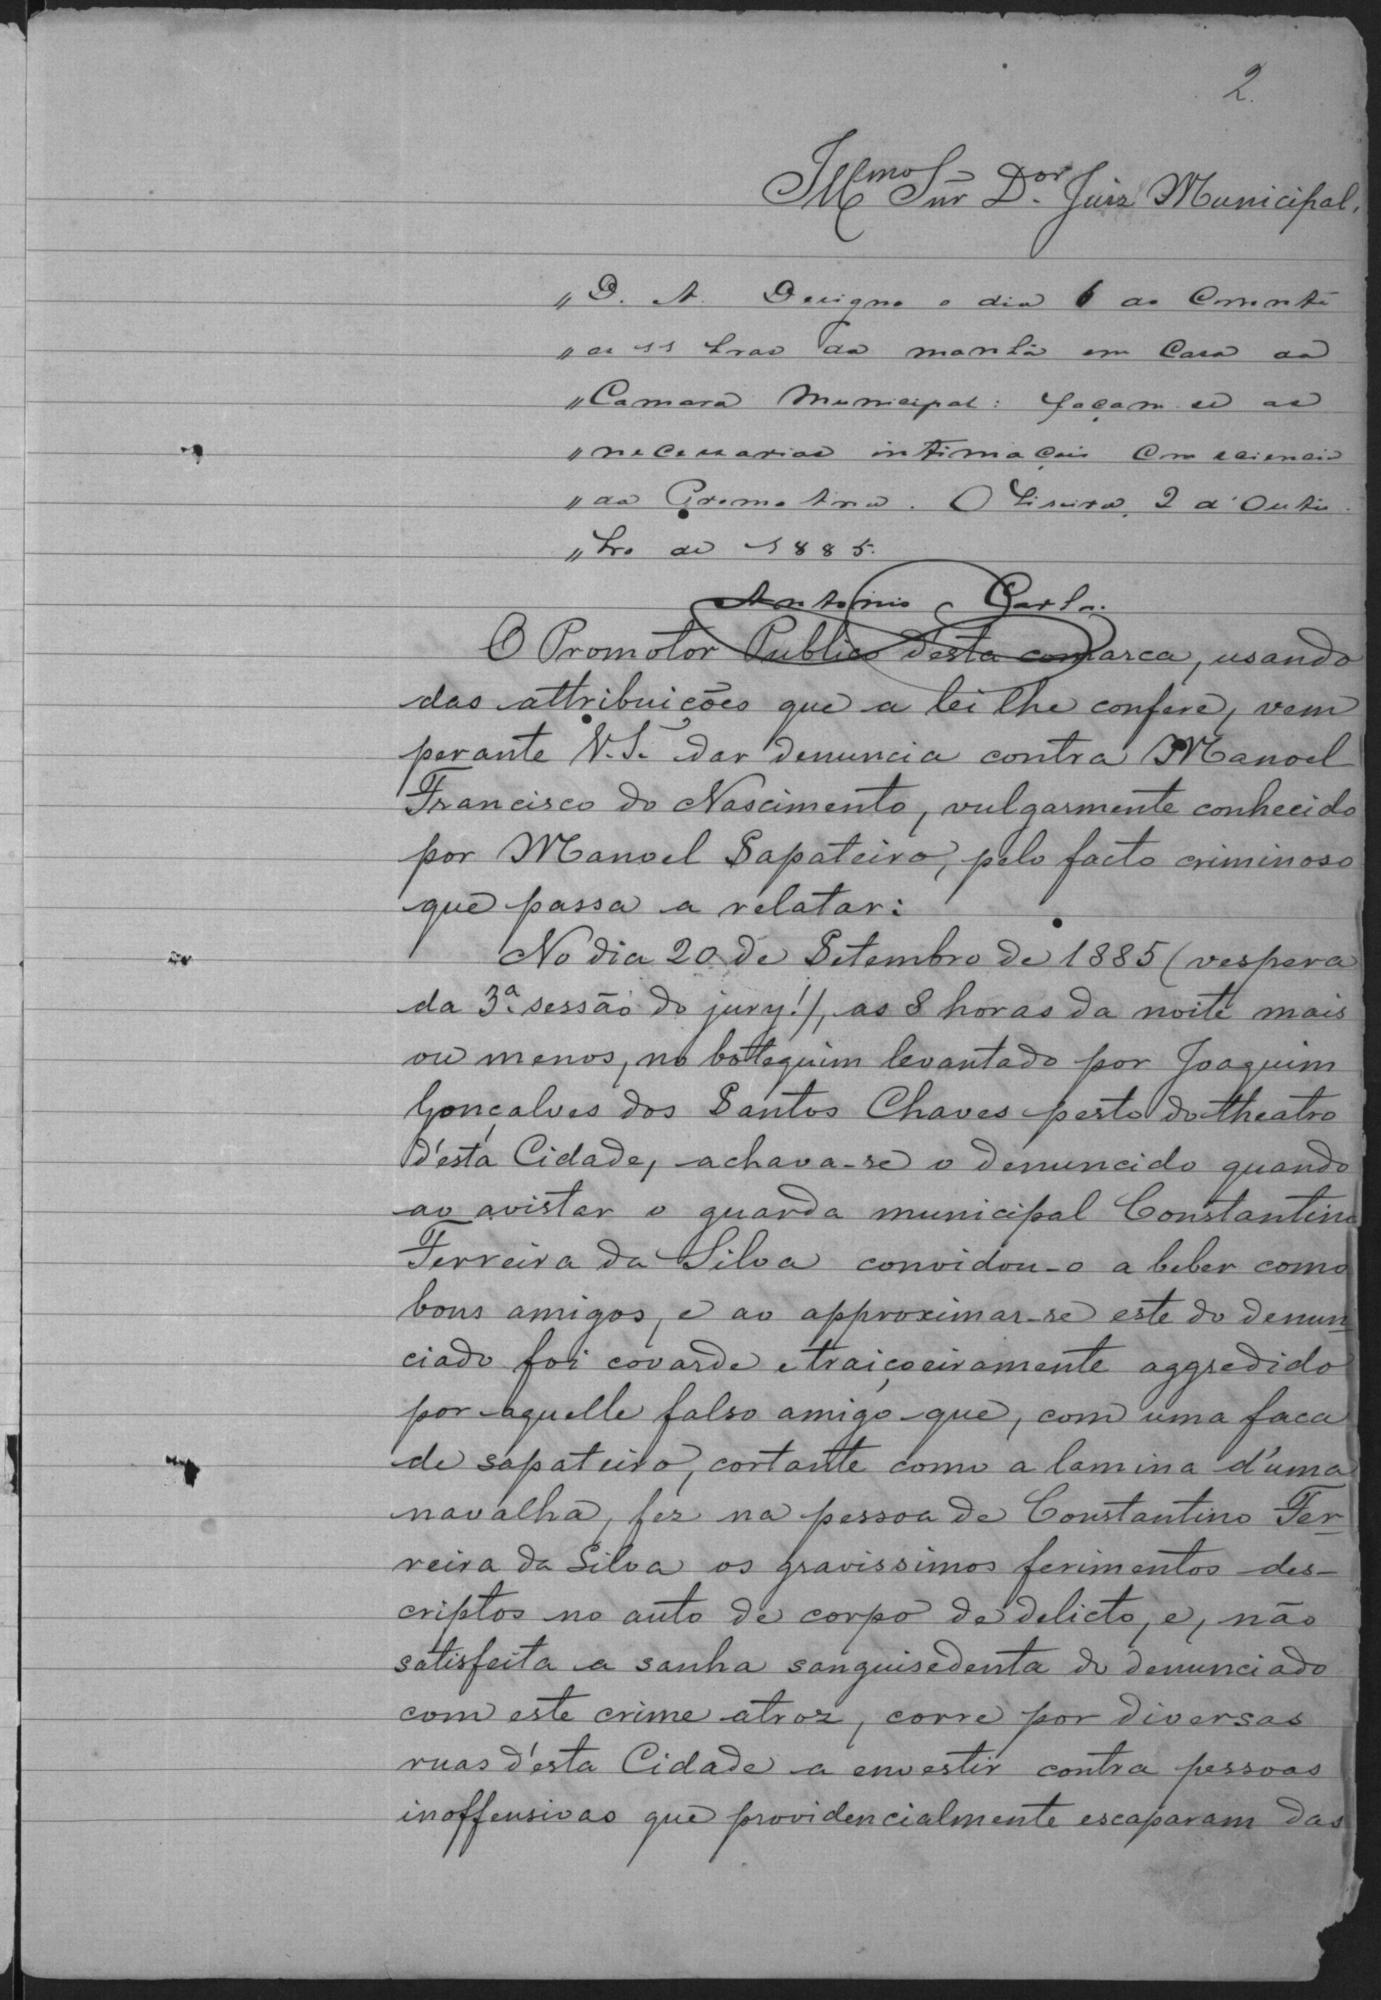 2.
Illmo Snr Dor. Juiz Municipal.
"D. A. Designo o dia 6 do Corrente
"as 11 horas da manhã em Casa da
"Camara Municipal: façam-se as
"necessarias intimações com sciencia
"da Promotoria. Oliveira, 2 d'Outu-
"bro de 1885.
Antonio Carlos.
O Promotor Publico desta comarca, usando
das attribuições que a lei lhe confere, vem
perante V.S. dar denuncia contra Manoel
Francisco do Nascimento, vulgarmente conhecido
por Manoel Sapateiro, pelo facto criminoso
que passa a relatar:
No dia 20 de Setembro de 1885 (vespera
da 3ª sessão do jury!), as 8 horas da noite mais
ou menos, no botequim levantado por Joaquim
Gonçalves dos Santos Chaves perto do theatro
d'esta Cidade, achava-se o denuncido quando
ao avistar o guarda municipal Constantino
Ferreira da Silva convidou-o a beber como
bons amigos, e ao approximar-se este do denun-
ciado foi covarde e traiçoeiramente aggredido
por aquelle falso amigo que, com uma faca
de sapateiro, cortante como a lamina d'uma
navalha, fez na pessoa de Constantino Fer-
reira da Silva os gravissimos ferimentos des-
criptos no auto de corpo de delicto, e, não
satisfeita a sanha sanguisedenta do denunciado
com este crime atroz, corre por diversas
ruas d'esta Cidade a envestir contra pessoas
inoffensivas que providencialmente escaparam das